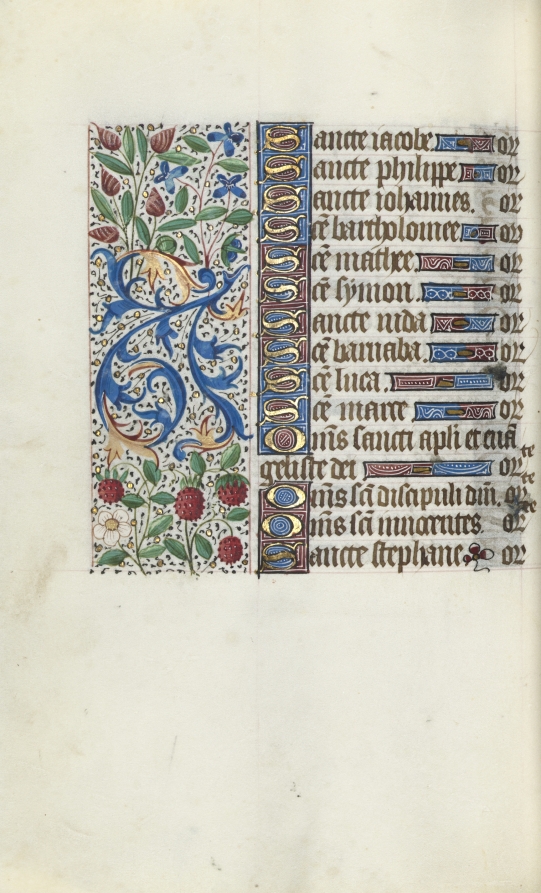 Sancte iacobe or
Sancte philippe or
Sancte iohannes. or
Sce bartholomee or
Sce mathee or
Sce symon. or
Sancte iuda or
Sce barnaba or
Sce luca. or
Sce marce or
Oms sancti apli et euā
geliste dei orte
Oms sci discipuli dni. orte
Oms sci innocentes. or
Sancte stephane or